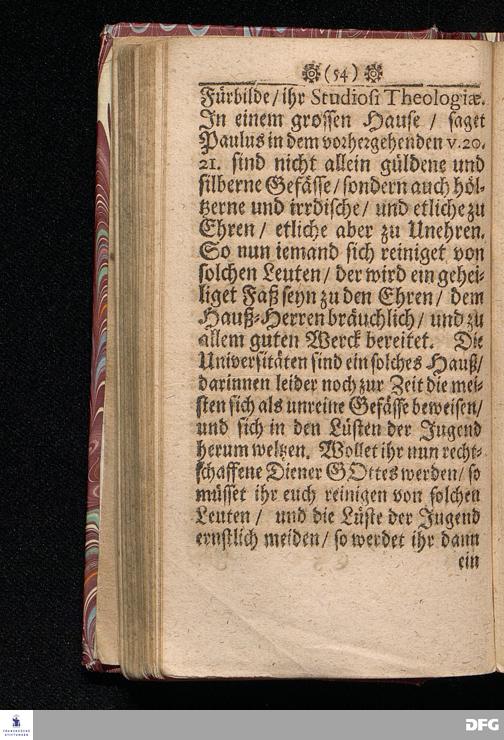 (54)
Fürbilde/ ihr Studiosi Theologiæ.
In einem grossen Hause / saget
Paulus in dem vorhergehenden v. 20.
21. sind nicht allein güldene und
silberne Gefässe/ sondern auch höl-
tzerne und irrdische/ und etliche zu
Ehren/ etliche aber zu Unehren.
So nun iemand sich reiniget von
solchen Leuten/ der wird ein gehei-
liget Faß seyn zu den Ehren/ dem
Hauß-Herren bräuchlich/ und zu
allem guten Werck bereitet. Die
Universitäten sind ein solches Hauß/
darinnen leider noch zur Zeit die mei-
sten sich als unreine Gefässe beweisen/
und sich in den Lüsten der Jugend
herum weltzen. Wollet ihr nun recht-
schaffene Diener GOttes werden/ so
müsset ihr euch reinigen von solchen
Leuten/ und die Lüste der Jugend
ernstlich meiden/ so werdet ihr dann
ein
FRANCKESCHE
STIFTUNGEN
DFG